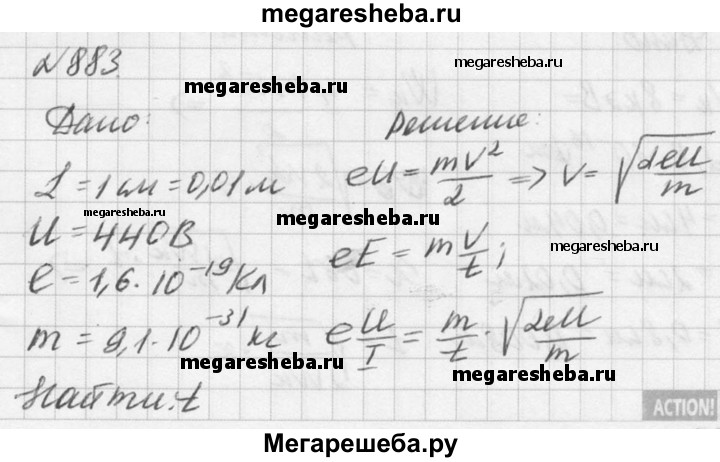 megaresheba.ru
№883
megaresheba.ru
Дано: Решение:
L = 1 см = 0,01 м eU = mV²/2 => V = √(2eU/m)
megaresheba.ru megaresheba.ru
U = 440 В eE = m V/t; megaresheba.ru
e = 1,6·10⁻¹⁹ Кл
m = 9,1·10⁻³¹ кг e U/I = m/t · √(2eU/m)
megaresheba.ru megaresheba.ru
Найти: t
ACTION!
Мегарешеба.ру